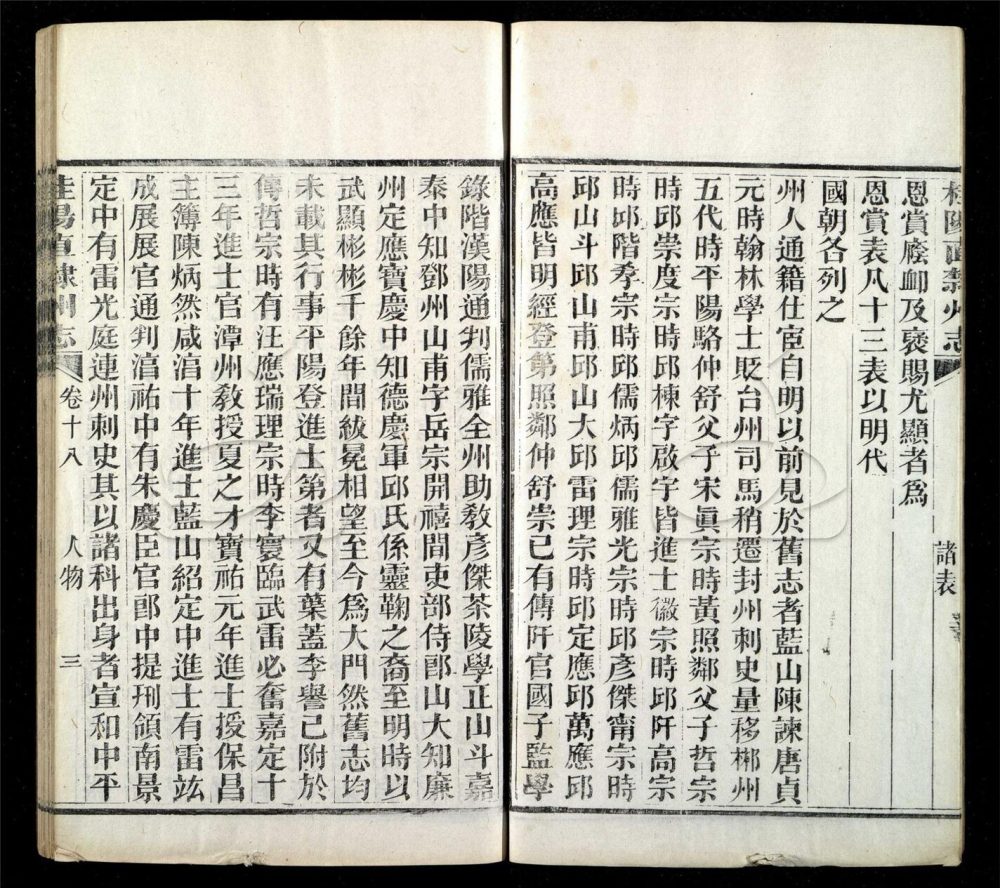 桂陽直隸州志
諸表
恩賞廕卹及褒賜尤顯者爲
恩賞表凡十三表以明代
國朝各列之
州人通籍仕宦自明以前見於舊志者藍山陳諫唐貞
元時翰林學士貶台州司馬稍遷封州刺史量移郴州
五代時平陽駱仲舒父子宋眞宗時黃照鄰父子哲宗
時邱崇度宗時邱棟字啟宇皆進士徽宗時邱阡高宗
時邱階孝宗時邱儒炳邱儒雅光宗時邱彥傑甯宗時
邱山斗邱山甫邱山大邱雷理宗時邱定應邱萬應邱
高應皆明經登第照鄰仲舒崇已有傳阡官國子監學
錄階漢陽通判儒雅全州助敎彥傑茶陵學正山斗嘉
泰中知鄧州山甫字岳宗開禧間吏部侍郎山大知廉
州定應寶慶中知德慶軍邱氏係靈鞠之裔至明時以
武顯彬彬千餘年間紱冕相望至今爲大門然舊志均
未載其行事平陽登進士第者又有葉蓋李譽已附於
傳哲宗時有汪應瑞理宗時李寰臨武雷必奮嘉定十
三年進士官潭州敎授夏之才寶祐元年進士授保昌
主簿陳炳然咸淯十年進士藍山紹定中進士有雷竑
成展展官通判淯祐中有朱慶臣官郎中提刑領南景
定中有雷光庭連州刺史其以諸科出身者宣和中平
桂陽直隸州志
卷十八
人物
三